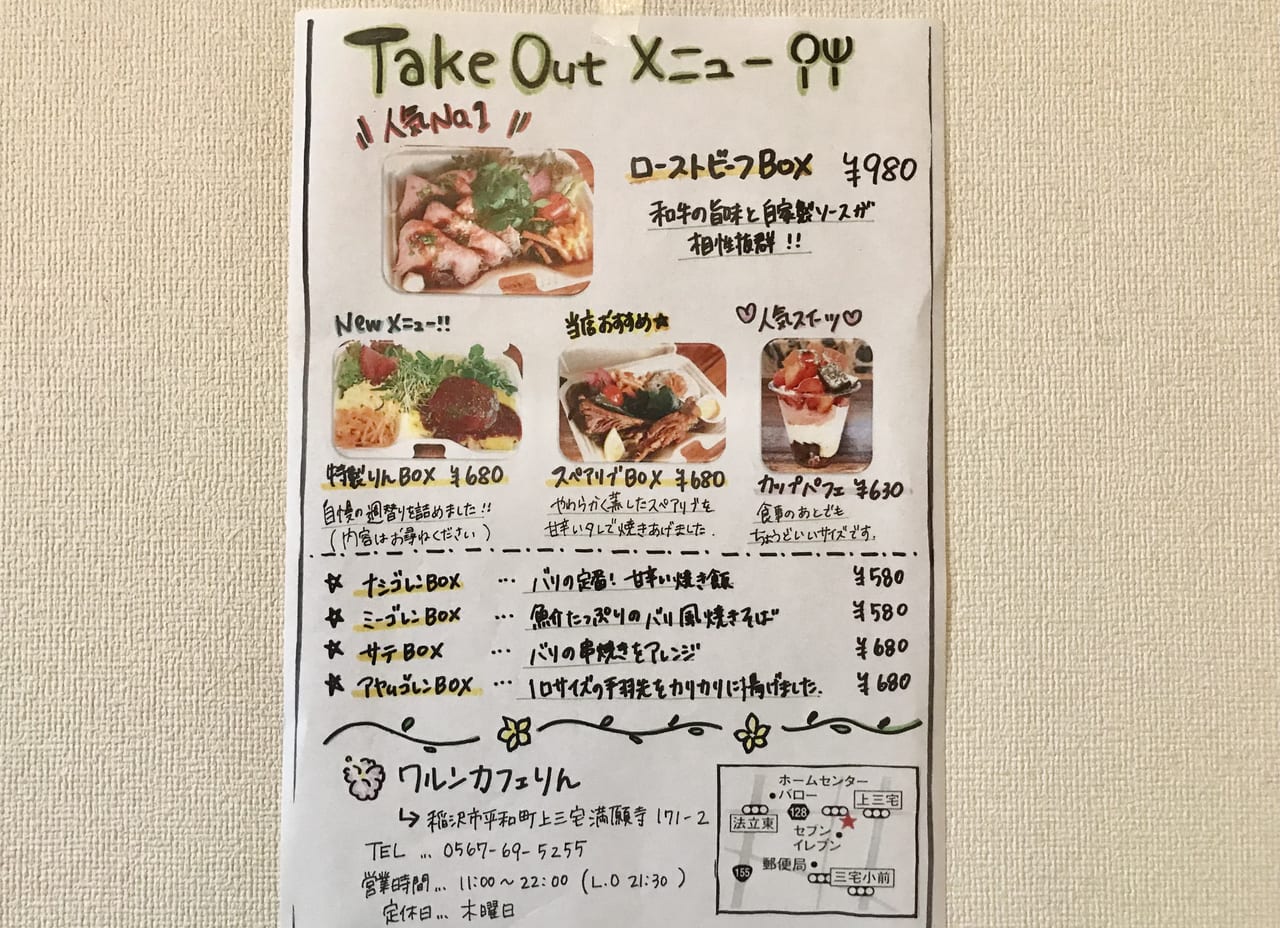 Take Out メニュー
人気No.1
ローストビーフBOX ¥980
和牛の旨味と自家製ソースが
相性抜群!!
Newメニュー!!
特製りんBOX ¥680
自慢の週替りを詰めました!!
(内容はお尋ねください)
当店おすすめ★
スペアリブBOX ¥680
やわらかく蒸したスペアリブを
甘辛いタレで焼きあげました.
♡人気スイーツ♡
カップパフェ ¥630
食事のあとでも
ちょうどいいサイズです.
☆ ナシゴレンBOX … バリの定番!甘辛い焼き飯 ¥580
☆ ミーゴレンBOX … 魚介たっぷりのバリ風焼きそば ¥580
☆ サテBOX … バリの串焼きをアレンジ ¥680
☆ アヤムゴレンBOX … 1口サイズの手羽先をカリカリに揚げました. ¥680
ワルンカフェりん
↳ 稲沢市平和町上三宅満願寺 171-2
TEL … 0567-69-5255
営業時間… 11:00～22:00 (L.O 21:30)
定休日… 木曜日
ホームセンター
バロー
128
上三宅
法立東
セブン
イレブン
郵便局
155
三宅小前